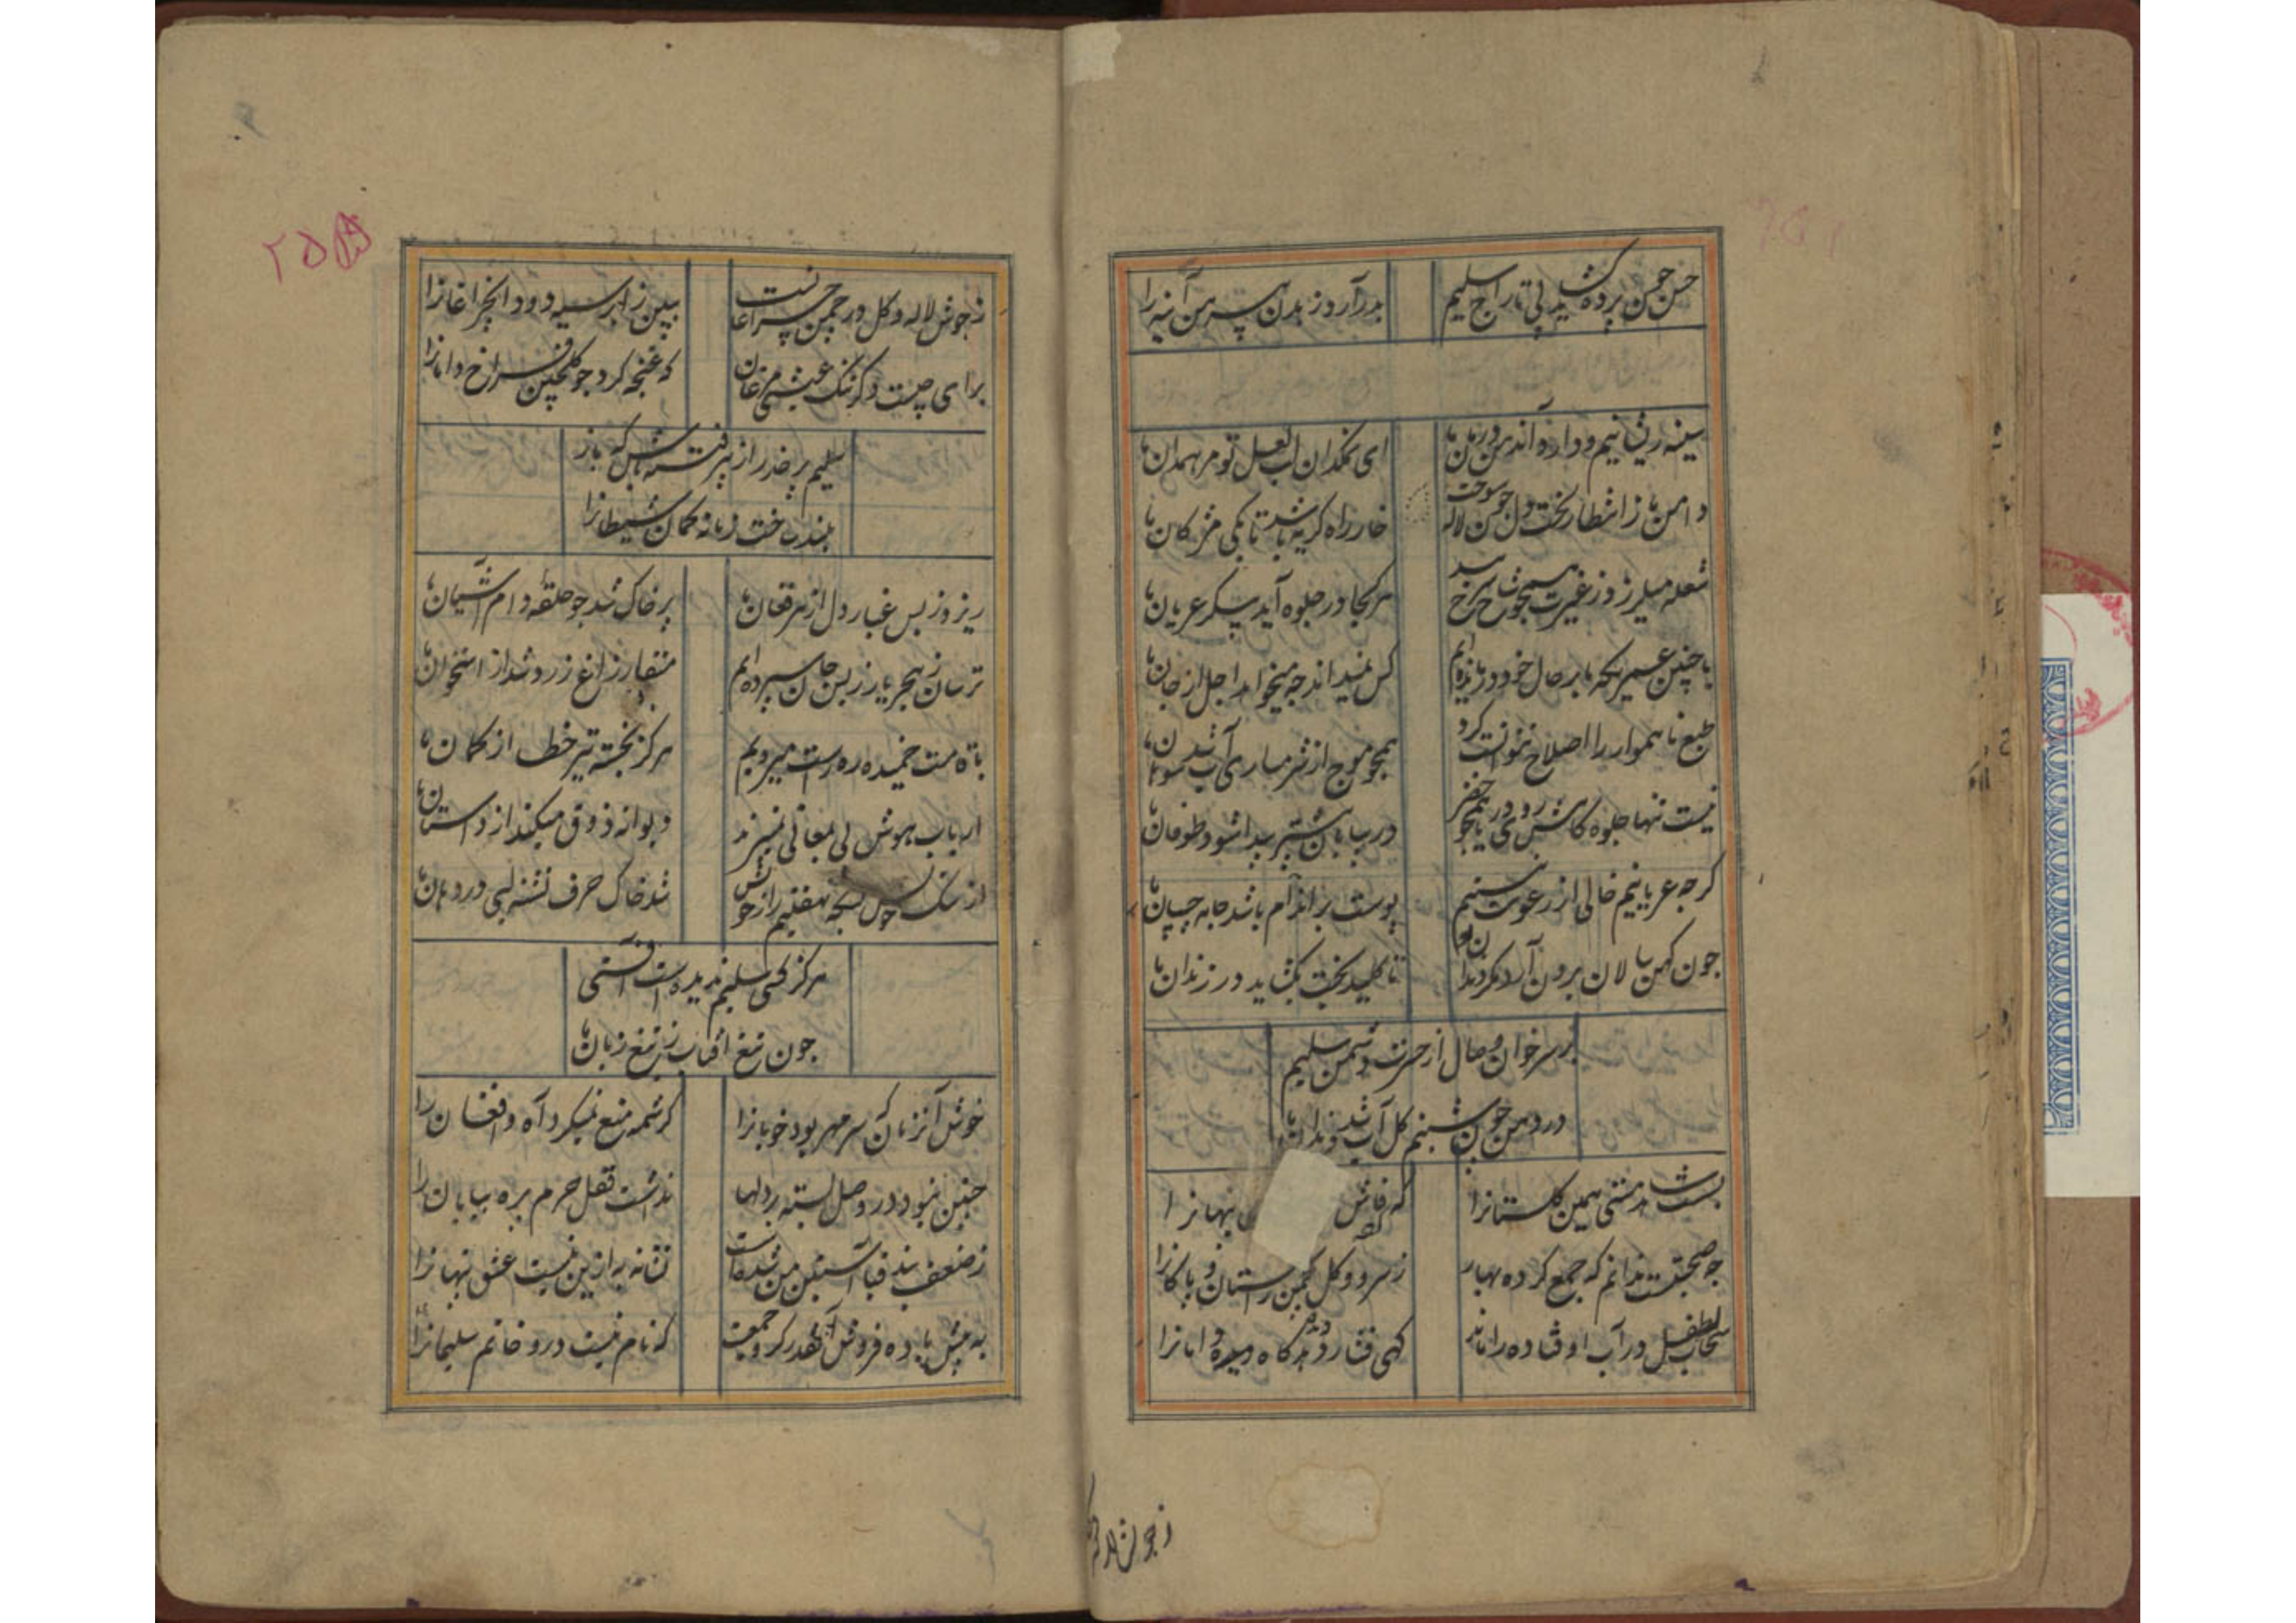 حسن چمن پرده کشید پی تاراج سلیم
بدر آرد ز بدن پیرهن آینه را
سینه ریشانیم و داده‌اند در درمان ما
ای نمکدان لب لعل تو مرهمدان ما
دامن ما ز انتظارت سوخت دل چون لاله
خار راه گریه باشد تا بکی مژکان ما
شعله میلرزد ز غیرت همچو شاخ سرخ بید
هر کجا در جلوه آید پیکر عریان ما
با چنین عمریکه ما بر حال خود درمانده‌ایم
کس نمیداند چه میخواهد اجل از جان ما
طبع ناهموار را اصلاح نتوانست کرد
همچو موج از شرمساری آب شد سوهان ما
نیست تنها جلوه کاهش روی دریا همچو خضر
در بیابان بیشتر پیدا شود طوفان ما
کرچه عریانیم خالی از رعونت نیستیم
پوست بر اندام باشد جامه چسپان ما
چون کهن سالان برون آرد مکر دندان او
تا کلید بخت بکشاید در زندان ما
بر سر خوان وصال از حسرت دشمن سلیم
در دهن چون شبنم کل آب شد دندان ما
بسست شاهد مستی همین کلستانرا
که فاش ی پنهانرا
چو صحبتست ندانم که جمع کرده بهار
ز سرو و کل چمن راستان و پاکانرا
سحاب طفل در آب اوفتاده را ماند
کهی فشارد و که میدرد دامانرا
ز جوش لاله
ز جوش لاله و کل در چمن چراغانست
ببین ز ابر سیه دود این چراغانرا
برای چیست دکر ننک عیش مرغان
که غنچه کرد چو کلچین فراخ دامانرا
سلیم پر حذر از پیر فتنه باش که باز
بند ساخت زمانه کمان شیطانرا
ریزد ز بس غبار دل از مرغان ما
پر خاک شد چو حلقه دام آشیان ما
ترسان ز هجر یار ز بس جان سپرده‌ایم
منقار زاغ زرد شد از استخوان ما
با قامت خمیده ره راست میرویم
هرکز نجسته تیر خطا از کمان ما
ارباب هوش پی بمعانی نمیبرند
دیوانه ذوق میکند از داستان ما
از ننک خویش بسکه نهفتیم راز خویش
شد خاک حرف تشنه لبی در دهان ما
هرکز کسی سلیم ندیده است آفتی
چون تیغ آفتاب ز تیغ زبان ما
خوش آنزمان که سر مهر بود خوبانرا
کرشمه منع نمیکرد آه و افغان را
چنین نبود در وصل بسته بر دلها
نداشت قفل حرم بره بیابان را
ز ضعف بند قبا آستین من شده است
نشانه به ازین نیست عشق پنهانرا
به پیش باده فروش آنقدر کرو جمعست
که نام نیست درو خاتم سلیمانرا